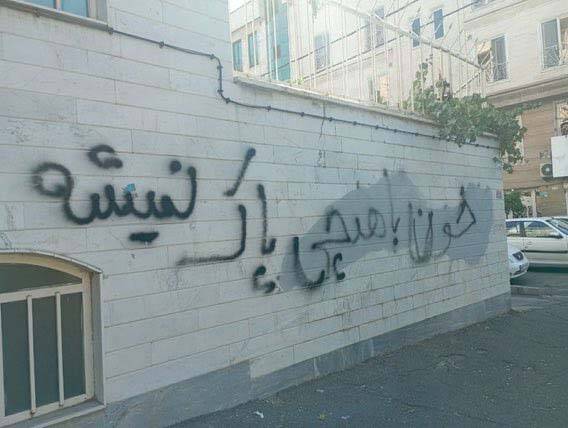 خون با هیچی پاک نمیشه